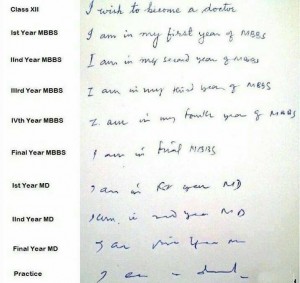 Class XII I wish to become a doctor
Ist Year MBBS I am in my first year of MBBS
IInd Year MBBS I am in my second year of MBBS
IIIrd Year MBBS I am in my third year of MBBS
IVth Year MBBS I am in my fourth year of MBBS
Final Year MBBS I am in final MBBS
Ist Year MD I am in Ist year MD
IInd Year MD I am in 2nd year MD
Final Year MD
Practice